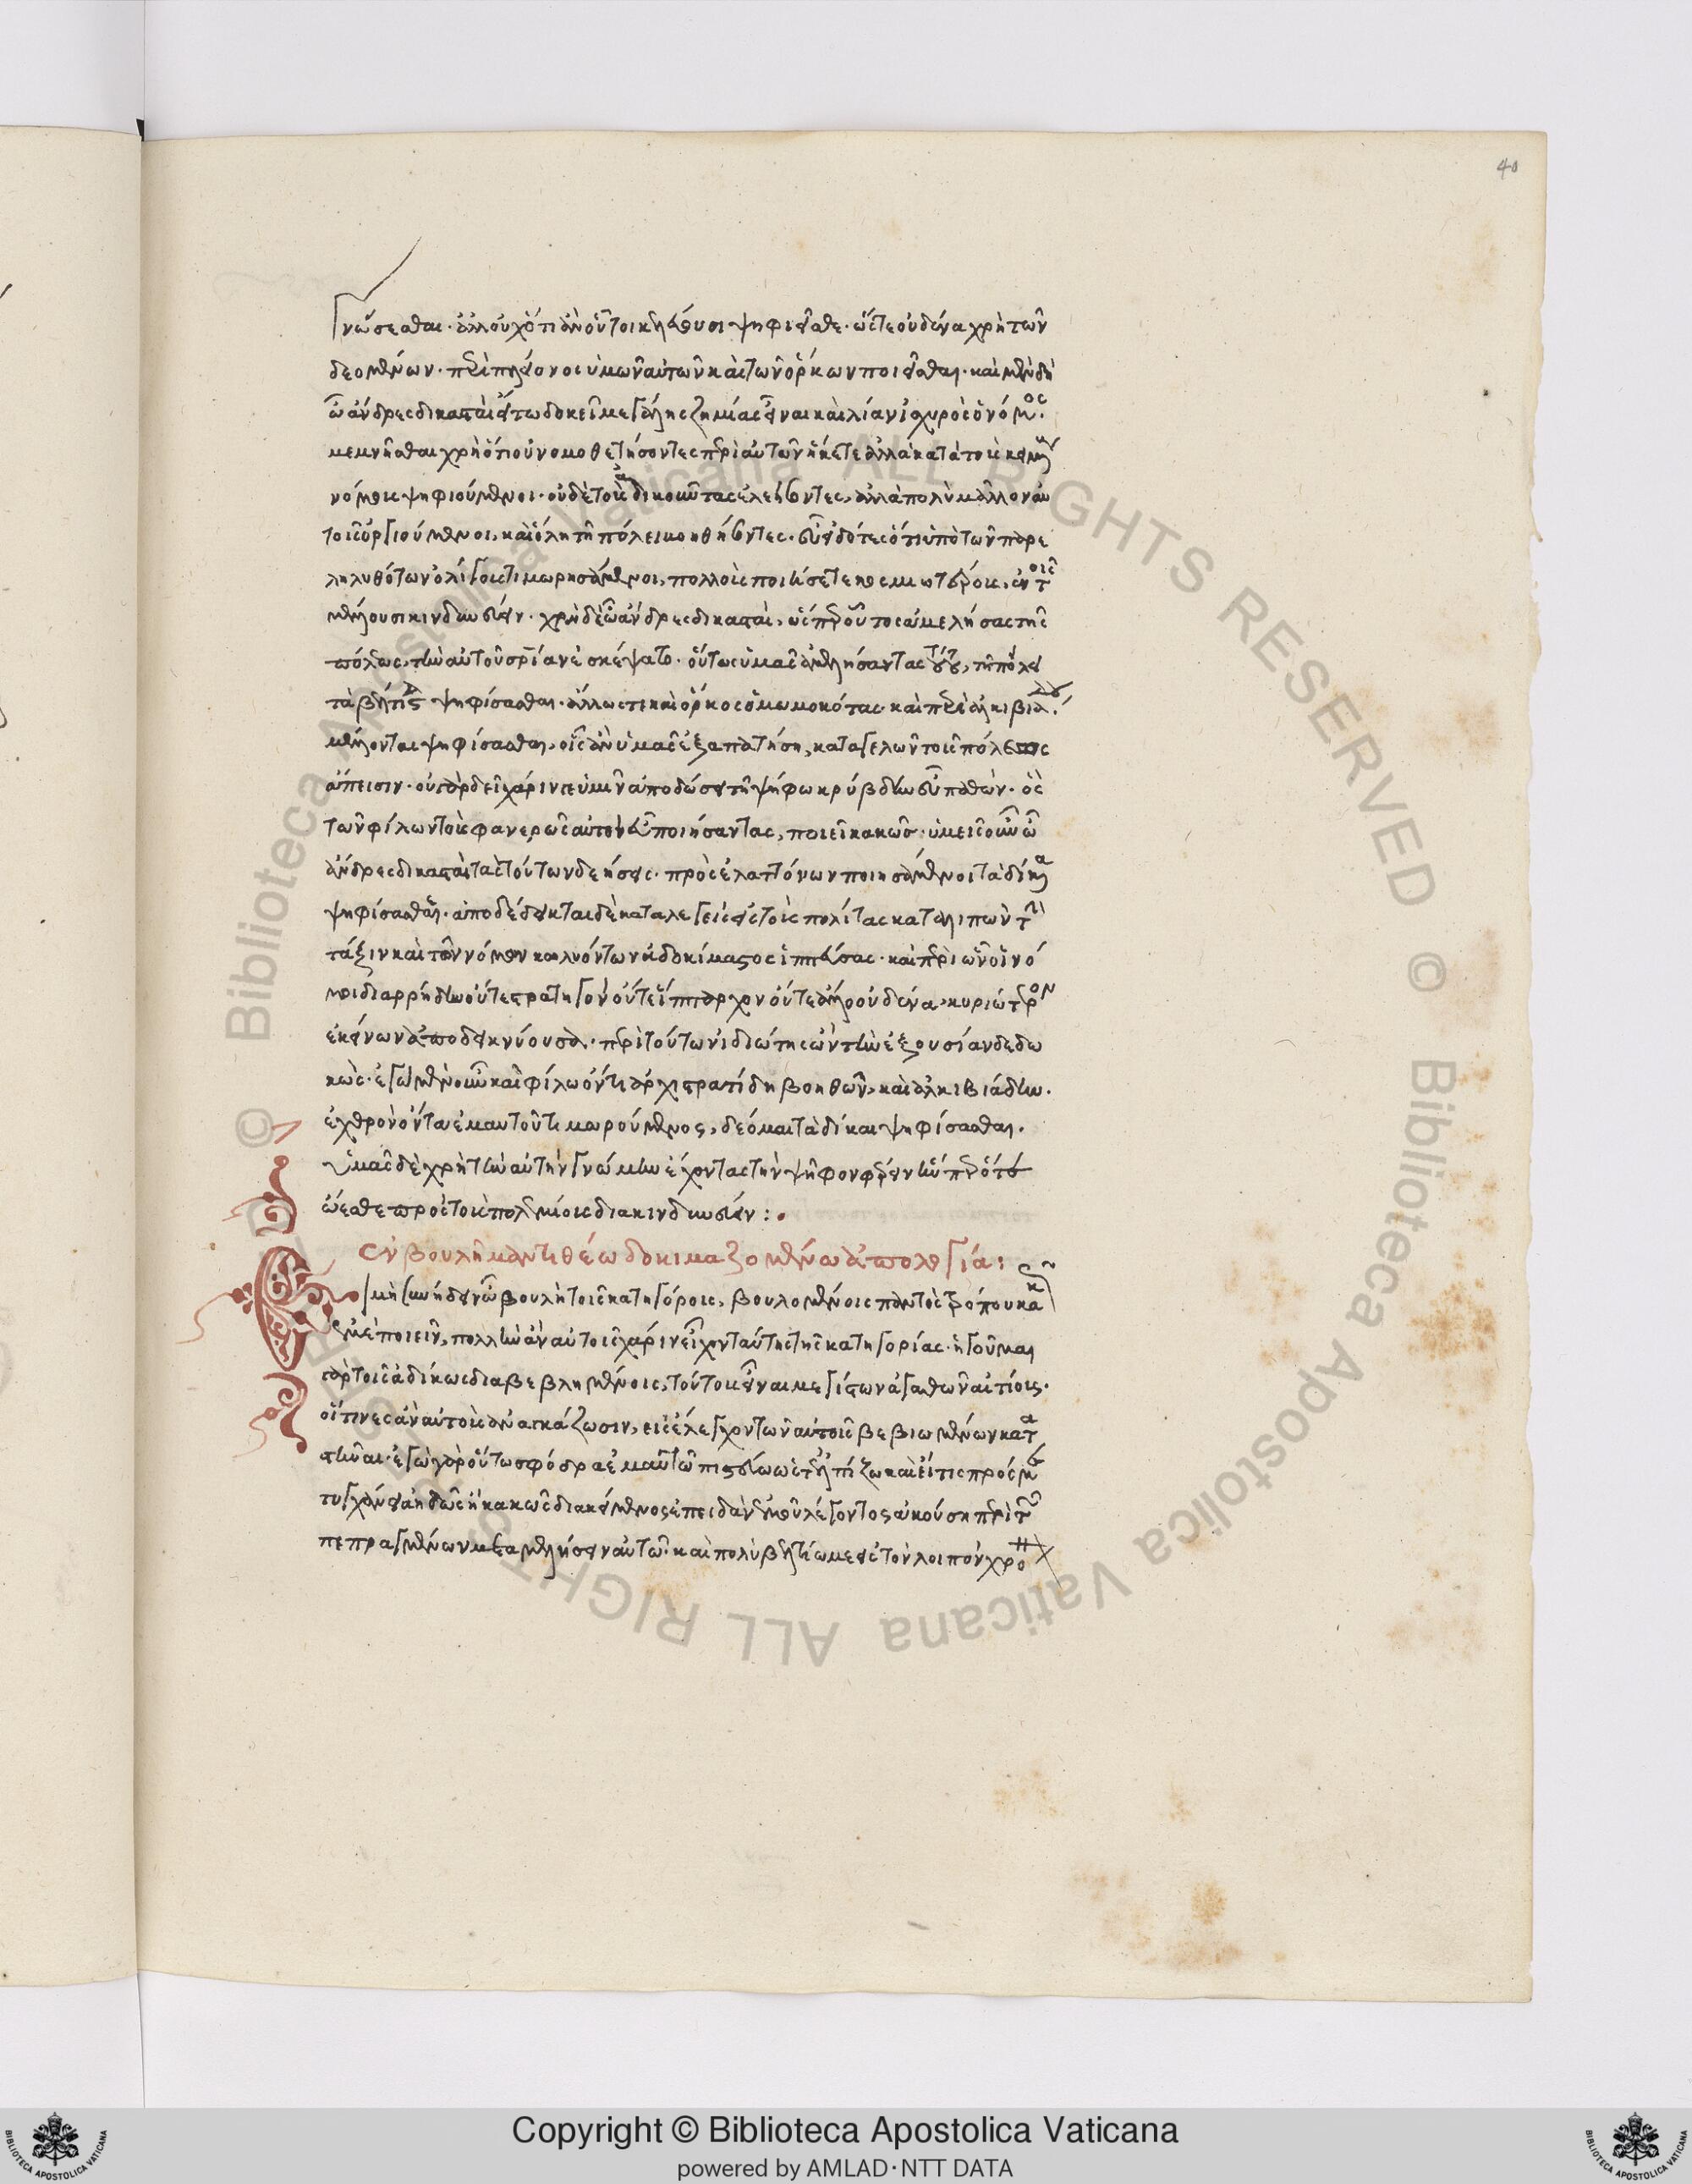 40
γνώσεσθαι· ἀλλ' οὐχ ὅτι ἂν οὗτοι κελεύωσι ψηφιεῖσθε· ὥστε οὐδένα χρὴ τῶν
δεομένων· περὶ πλείονος ὑμῶν αὐτῶν καὶ τῶν ὅρκων ποιεῖσθαι· καὶ μὲν δὴ
ὦ ἄνδρες δικασταὶ εἴ τω δοκεῖ μεγάλη ζημία εἶναι καὶ λίαν ἰσχυρὸς ὁ νόμος·
μεμνῆσθαι χρὴ ὅτι οὐ νομοθετήσοντες περὶ αὐτῶν ἥκετε ἀλλὰ κατὰ τοὺς κειμένους
νόμους ψηφιούμενοι· οὐδὲ τοὺς ἀδικοῦντας ἐλεήσοντες, ἀλλὰ πολὺ μᾶλλον αὐ
τοῖς ὀργιούμενοι, καὶ ὅλη τῇ πόλει βοηθήσοντες· εὖ εἰδότες ὅτι ὑπὲρ τῶν παρε
ληλυθότων ὀλίγους τιμωρησάμενοι, πολλοὺς ποιήσετε κοσμιωτέρους, ἐν τοῖς
μέλλουσι κινδυνεύειν· χρὴ δὲ ὦ ἄνδρες δικασταὶ, ὥσπερ οὗτος ἀμελήσας τῆς
πόλεως, τὴν αὑτοῦ σωτηρίαν ἐσκέψατο· οὕτως ὑμᾶς ἀμελήσαντας τούτου, τῇ πόλει
τὰ βέλτιστα ψηφίσασθαι· ἄλλως τε καὶ ὅρκους ὀμωμοκότας καὶ περὶ ἀλκιβιάδου
μέλλοντας ψηφίσασθαι, ὃς ἐὰν ὑμᾶς ἐξαπατήσῃ, καταγελῶν τῆς πόλεως
ἄπεισιν· οὐ γὰρ δὴ χάριν γε ὑμῖν ἀποδώσει τῇ ψήφω κρύβδην εὖ παθὼν· ὃς
τῶν φίλων τοὺς φανερῶς αὐτὸν εὖ ποιήσαντας, ποιεῖ κακῶς· ὑμεῖς οὖν ὦ
ἄνδρες δικασταὶ τὰς τούτων δεήσεις· πρὸς ἐλάττονος ποιησάμενοι τὰ δίκαια
ψηφίσασθαι· ἀποδέδεικται δὲ καταλεγεὶς εἰς τοὺς πολίτας καταλιπὼν τὴν
τάξιν καὶ τῶν νόμων κωλυόντων ἀδοκίμαστος ἱππεύσας· καὶ περὶ ὧν οἱ νό
μοι διαρρήδην οὔτε στρατηγὸν οὔτε ἵππαρχον οὔτε ἄλλον οὐδένα κυριώτερον
ἐκείνων ἀποδεικνύουσα· περὶ τούτων ἰδιώτης ὢν τὴν ἐξουσίαν δεδω
κὼς· ἐγὼ μὲν οὖν καὶ φίλω ὄντι ἀρχιστρατίδη βοηθῶν, καὶ ἀλκιβιάδην
ἐχθρὸν ὄντα ἐμαυτοῦ τιμωρούμενος, δέομαι τὰ δίκαια ψηφίσασθαι.
Ὑμᾶς δὲ χρὴ τὴν αὐτὴν γνώμην ἔχοντας τὴν ψῆφον φέρειν ἥνπερ ὅτε
ὤεσθε πρὸς τοὺς πολεμίους διακινδυνεύειν:·
ἐν βουλῇ μαντιθέω δοκιμαζομένω ἀπολογία:
Εἰ μὴ συνήδειν ὦ βουλὴ τοῖς κατηγόροις, βουλομένοις παντὸς τρόπου κακῶς
ἐμὲ ποιεῖν, πολλὴν ἂν αὐτοῖς χάριν εἶχον ταύτης τῆς κατηγορίας· ἡγοῦμαι
γὰρ τοῖς ἀδίκως διαβεβλημένοις, τούτους εἶναι μεγίστων ἀγαθῶν αἰτίους·
οἵτινες ἂν αὐτοὺς ἀναγκάζωσιν, εἰς ἔλεγχον τῶν αὐτοῖς βεβιωμένων κατα
στῆναι· ἐγὼ γὰρ οὕτω σφόδρα ἐμαυτῶ πιστεύω ὥστ' ἐλπίζω καὶ εἴ τις πρός με
τυγχάνει ἀηδῶς ἢ κακῶς διακείμενος ἐπειδὰν ἐμοῦ λέγοντος ἀκούσῃ περὶ τῶν
πεπραγμένων μεταμελήσειν αὐτῶ· καὶ πολὺ βελτίω με εἰς τὸν λοιπὸν χρό
Copyright © Biblioteca Apostolica Vaticana
powered by AMLAD·NTT DATA